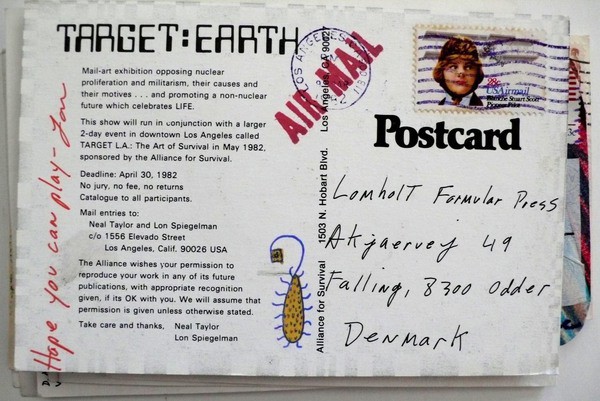 TARGET:EARTH
Mail-art exhibition opposing nuclear
proliferation and militarism, their causes and
their motives . . . and promoting a non-nuclear
future which celebrates LIFE.
This show will run in conjunction with a larger
2-day event in downtown Los Angeles called
TARGET L.A.: The Art of Survival in May 1982,
sponsored by the Alliance for Survival.
Deadline: April 30, 1982
No jury, no fee, no returns
Catalogue to all participants.
Mail entries to:
Neal Taylor and Lon Spiegelman
c/o 1556 Elevado Street
Los Angeles, Calif. 90026 USA
The Alliance wishes your permission to
reproduce your work in any of its future
publications, with appropriate recognition
given, if its OK with you. We will assume that
permission is given unless otherwise stated.
Take care and thanks, Neal Taylor
Lon Spiegelman
Hope you can play - Lon
Alliance for Survival 1503 N. Hobart Blvd. Los Angeles, CA 9002
AIR MAIL
LOS ANGELES
28c
USAirmail
Blanche Stuart Scott
Pioneer Pilot
Postcard
Lomholt Formular Press
Akjaervej 49
Falling, 8300 Odder
Denmark